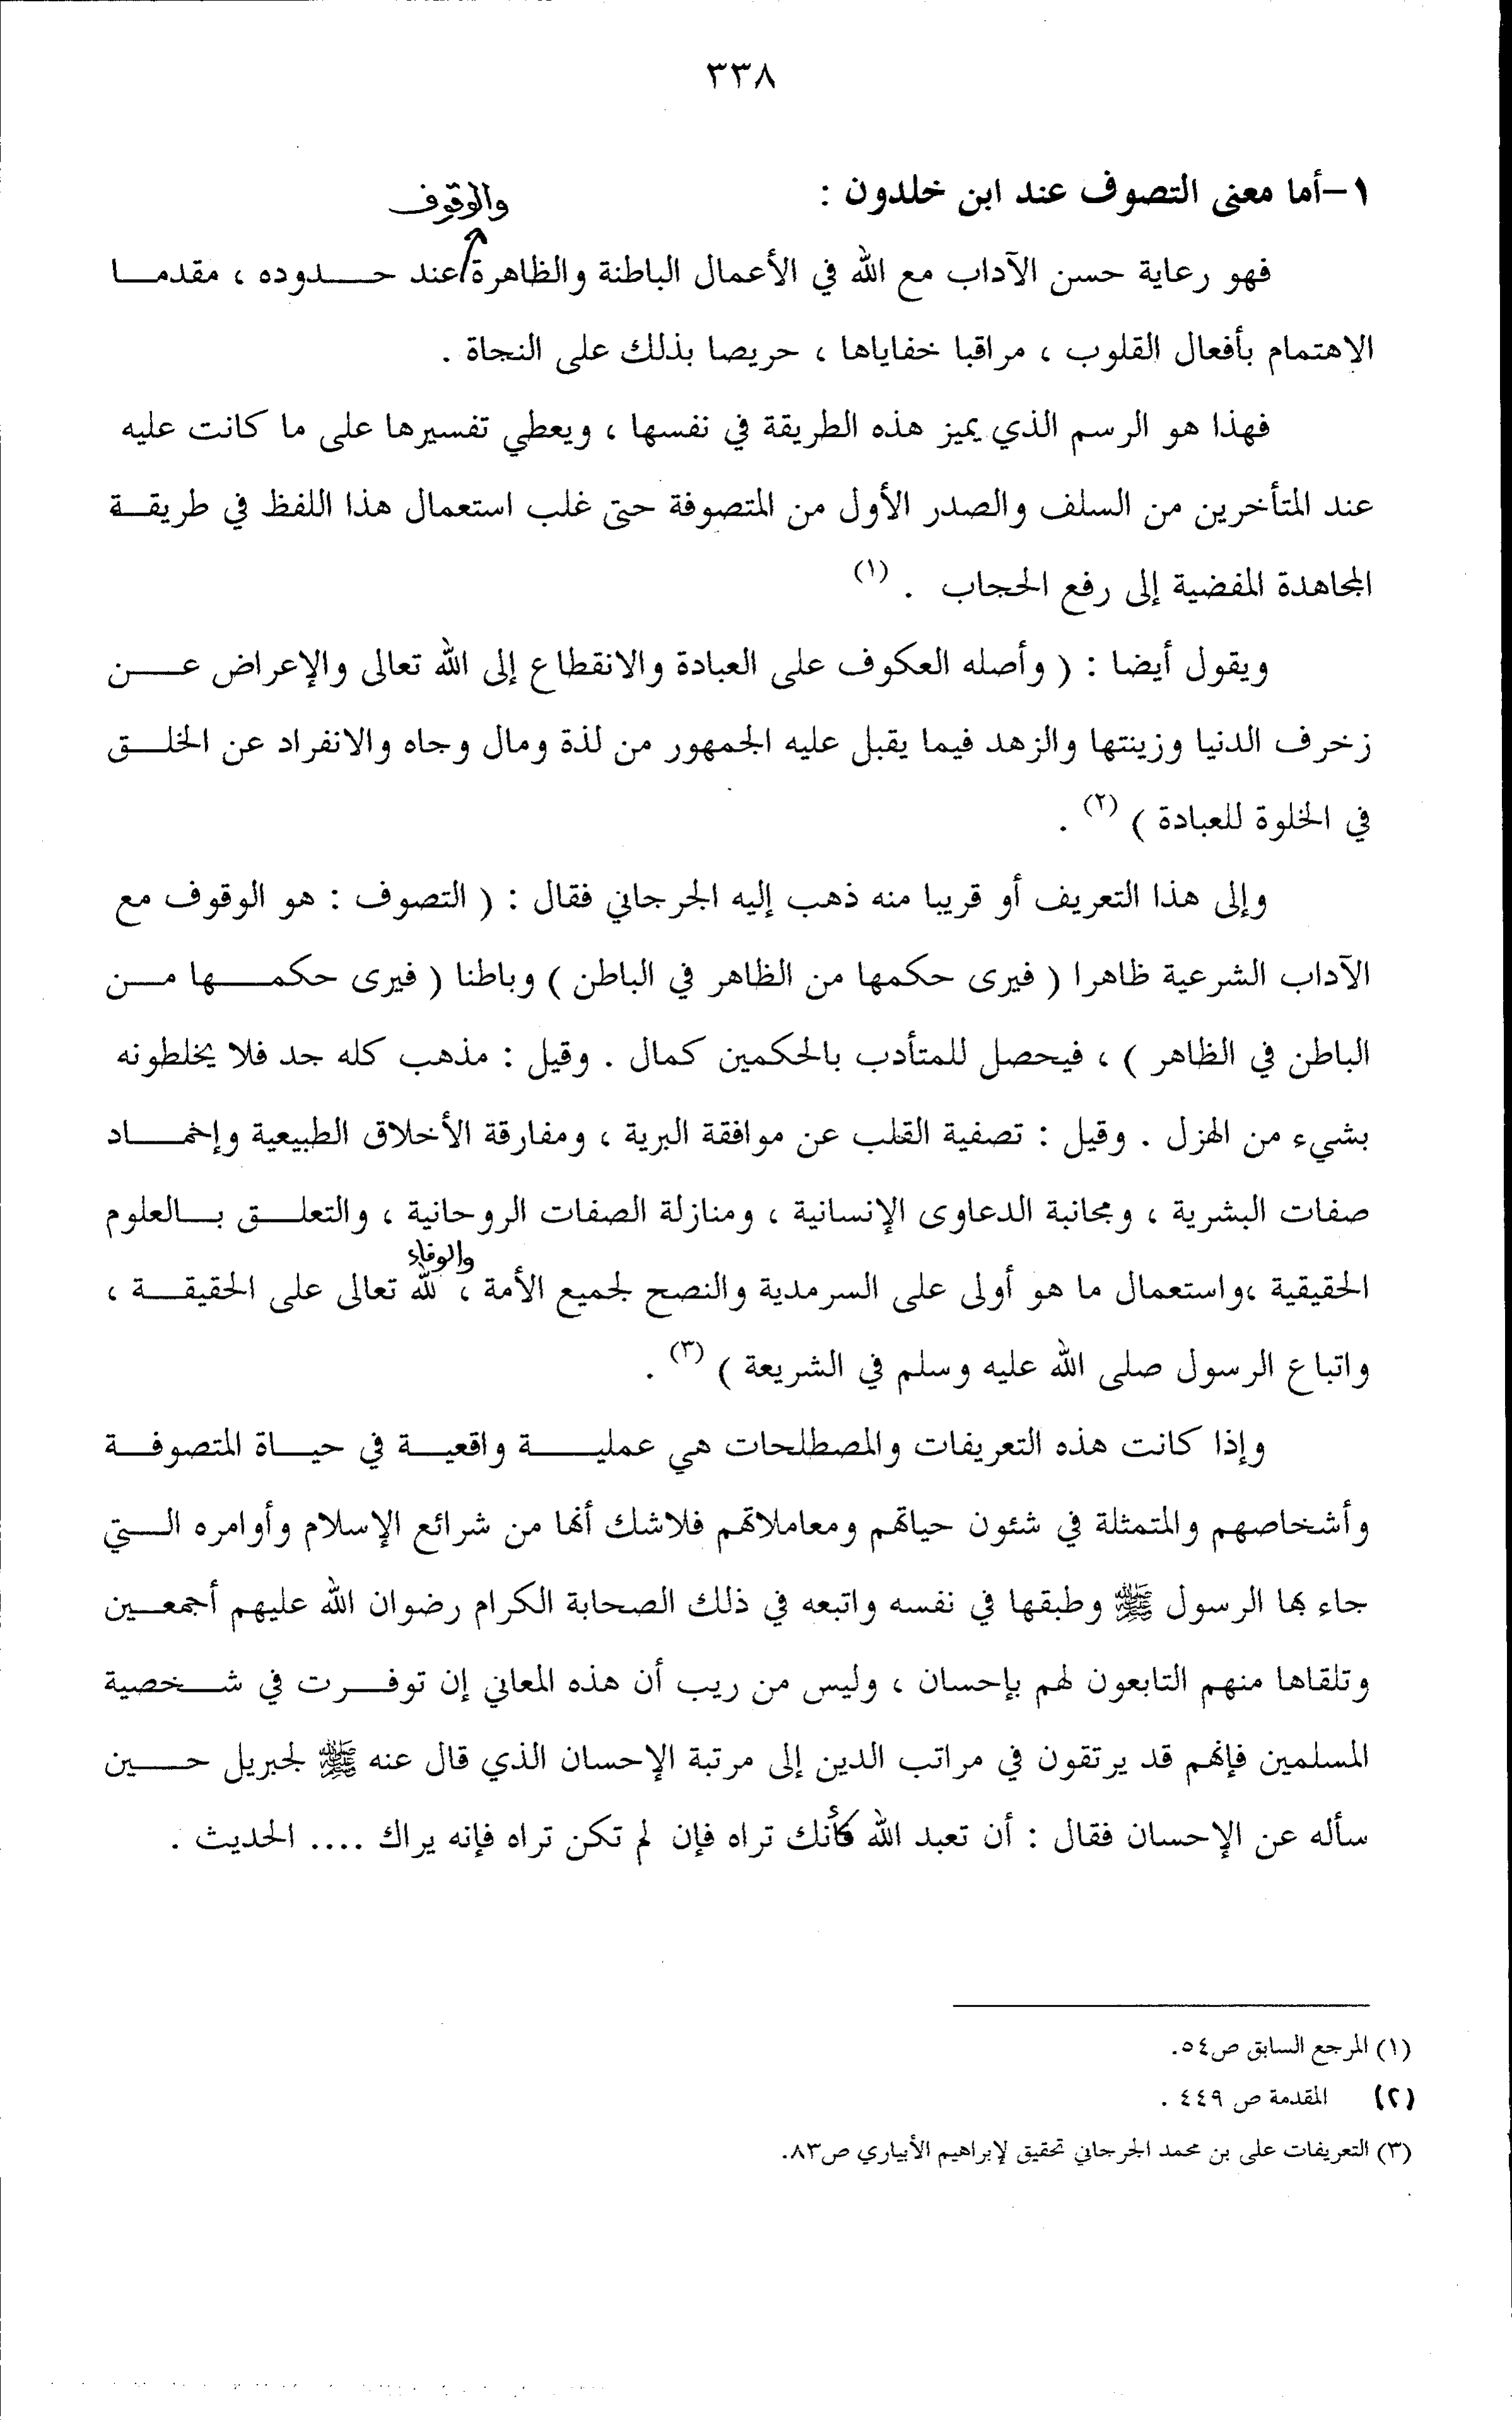 ٣٣٨
١-أما معنى التصوف عند ابن خلدون :
والوقوف
فهو رعاية حسن الآداب مع الله في الأعمال الباطنة والظاهرة عند حدوده ، مقدما
الاهتمام بأفعال القلوب ، مراقبا خفاياها ، حريصا بذلك على النجاة .
فهذا هو الرسم الذي يميز هذه الطريقة في نفسها ، ويعطي تفسيرها على ما كانت عليه
عند المتأخرين من السلف والصدر الأول من المتصوفة حتى غلب استعمال هذا اللفظ في طريقة
المجاهدة المفضية إلى رفع الحجاب . (١)
ويقول أيضا : ( وأصله العكوف على العبادة والانقطاع إلى الله تعالى والإعراض عن
زخرف الدنيا وزينتها والزهد فيما يقبل عليه الجمهور من لذة ومال وجاه والانفراد عن الخلق
في الخلوة للعبادة ) (٢) .
وإلى هذا التعريف أو قريبا منه ذهب إليه الجرجاني فقال : ( التصوف : هو الوقوف مع
الآداب الشرعية ظاهرا ( فيرى حكمها من الظاهر في الباطن ) وباطنا ( فيرى حكمها من
الباطن في الظاهر ) ، فيحصل للمتأدب بالحكمين كمال . وقيل : مذهب كله جد فلا يخلطونه
بشيء من الهزل . وقيل : تصفية القلب عن موافقة البرية ، ومفارقة الأخلاق الطبيعية وإخماد
صفات البشرية ، ومجانبة الدعاوى الإنسانية ، ومنازلة الصفات الروحانية ، والتعلق بالعلوم
والوفاء
الحقيقية ،واستعمال ما هو أولى على السرمدية والنصح لجميع الأمة ، لله تعالى على الحقيقة ،
واتباع الرسول صلى الله عليه وسلم في الشريعة ) (٣) .
وإذا كانت هذه التعريفات والمصطلحات هي عملية واقعية في حياة المتصوفة
وأشخاصهم والمتمثلة في شئون حياتهم ومعاملاتهم فلاشك أنها من شرائع الإسلام وأوامره التي
جاء بها الرسول ﷺ وطبقها في نفسه واتبعه في ذلك الصحابة الكرام رضوان الله عليهم أجمعين
وتلقاها منهم التابعون لهم بإحسان ، وليس من ريب أن هذه المعاني إن توفرت في شخصية
المسلمين فإنهم قد يرتقون في مراتب الدين إلى مرتبة الإحسان الذي قال عنه ﷺ لجبريل حين
سأله عن الإحسان فقال : أن تعبد الله كأنك تراه فإن لم تكن تراه فإنه يراك .... الحديث .
(١) المرجع السابق ص٥٤.
(٢) المقدمة ص ٤٤٩ .
(٣) التعريفات على بن محمد الجرجاني تحقيق لإبراهيم الأبياري ص٨٣.